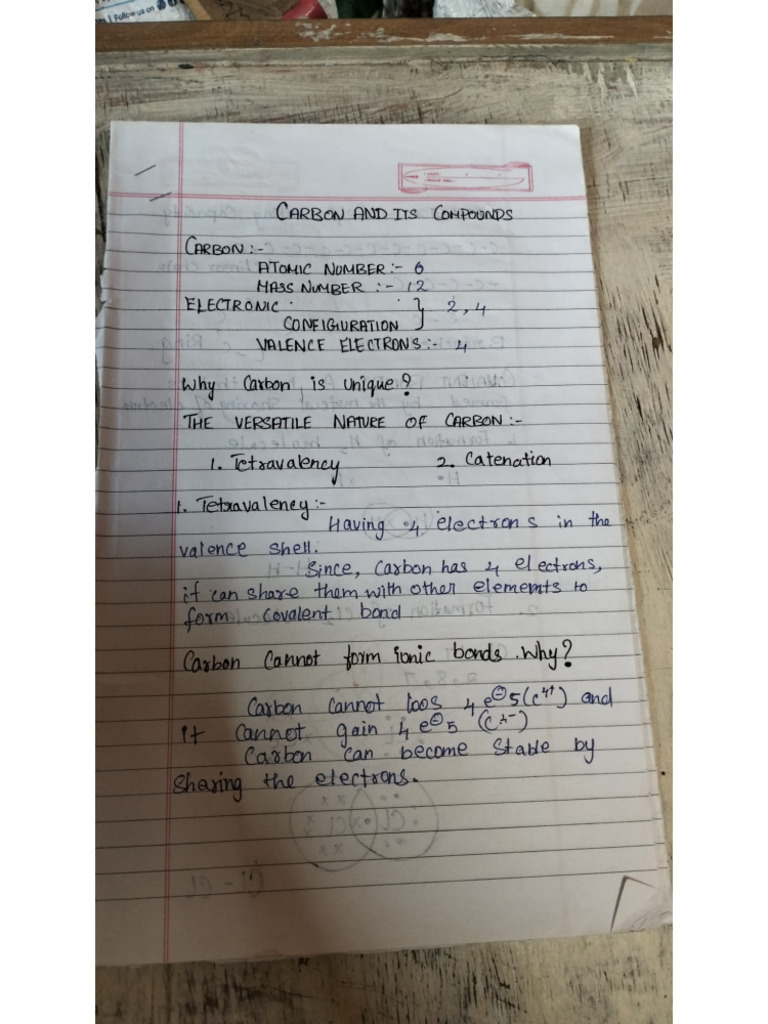 Follow us on
CARBON AND ITS COMPOUNDS
CARBON :-
ATOMIC NUMBER :- 6
MASS NUMBER :- 12
ELECTRONIC
CONFIGIURATION } 2, 4
VALENCE ELECTRONS :- 4
Why Carbon is unique?
THE VERSATILE NATURE OF CARBON :-
1. Tetravalency 2. Catenation
1. Tetravalency :-
Having 4 electrons in the
valence shell.
Since, Carbon has 4 electrons,
it can share them with other elements to
form covalent bond
Carbon Cannot form ionic bonds. Why?
Carbon Cannot loos 4 e⊖s (C⁴⁺) and
it cannot gain 4 e⊖s (C⁴⁻)
Carbon can become stable by
sharing the electrons.